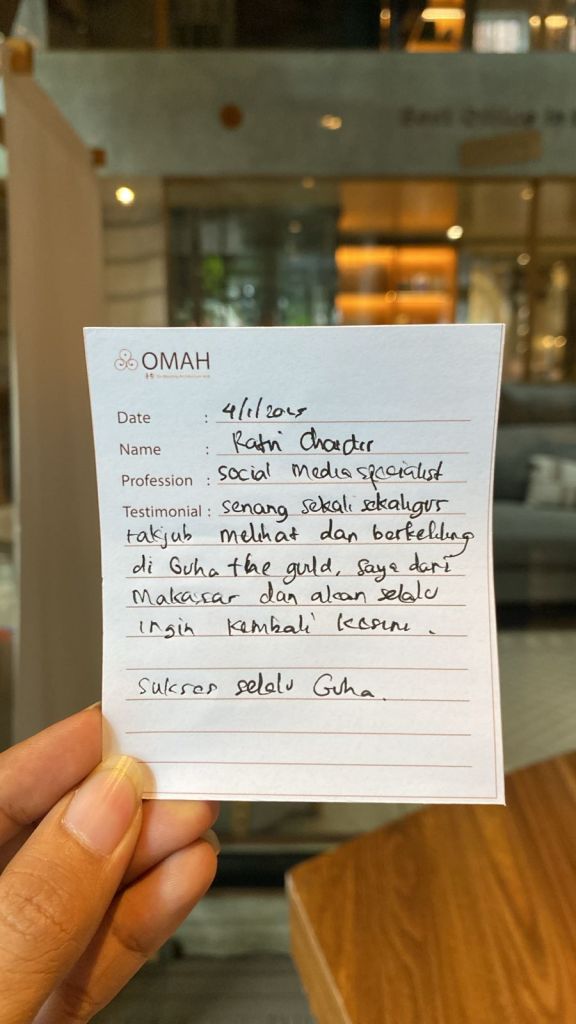 OMAH
Date : 4/1/2025
Name : Ratri
Profession : Social Media specialist
Testimonial : senang sekali sekaligus
takjub melihat dan berkeliling
di Guha the guild, saya dari
Makassar dan akan selalu
ingin kembali kesini.
Sukses selalu Guha.